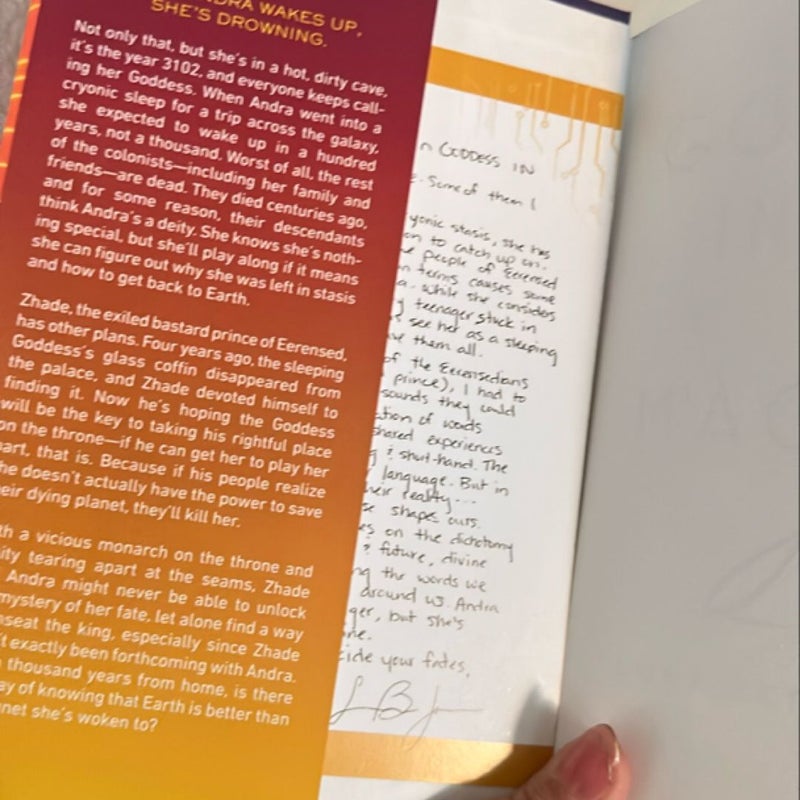 NDRA WAKES UP,
SHE'S DROWNING.
Not only that, but she's in a hot, dirty cave,
it's the year 3102, and everyone keeps call-
ing her Goddess. When Andra went into a
cryonic sleep for a trip across the galaxy,
she expected to wake up in a hundred
years, not a thousand. Worst of all, the rest
of the colonists—including her family and
friends—are dead. They died centuries ago,
and for some reason, their descendants
think Andra's a deity. She knows she's noth-
ing special, but she'll play along if it means
she can figure out why she was left in stasis
and how to get back to Earth.
Zhade, the exiled bastard prince of Eerensed,
has other plans. Four years ago, the sleeping
Goddess's glass coffin disappeared from
the palace, and Zhade devoted himself to
finding it. Now he's hoping the Goddess
will be the key to taking his rightful place
on the throne—if he can get her to play her
art, that is. Because if his people realize
he doesn't actually have the power to save
eir dying planet, they'll kill her.
th a vicious monarch on the throne and
ity tearing apart at the seams, Zhade
Andra might never be able to unlock
mystery of her fate, let alone find a way
nseat the king, especially since Zhade
t exactly been forthcoming with Andra.
thousand years from home, is there
ay of knowing that Earth is better than
net she's woken to?
n GODDESS IN
e. Some of them I
yonic stasis, she has
on to catch up on.
e people of Eerensed
n terms causes some
a. While she considers
y teenager stuck in
see her as a sleeping
ve them all.
of the Eerensedians
prince), I had to
sounds they could
ation of words
shared experiences
g & short-hand. The
language. But in
heir reality...
se shapes ours.
es on the dichotomy
& future, divine
ng the words we
around us. Andra
ger, but she's
ne.
cide your fates,